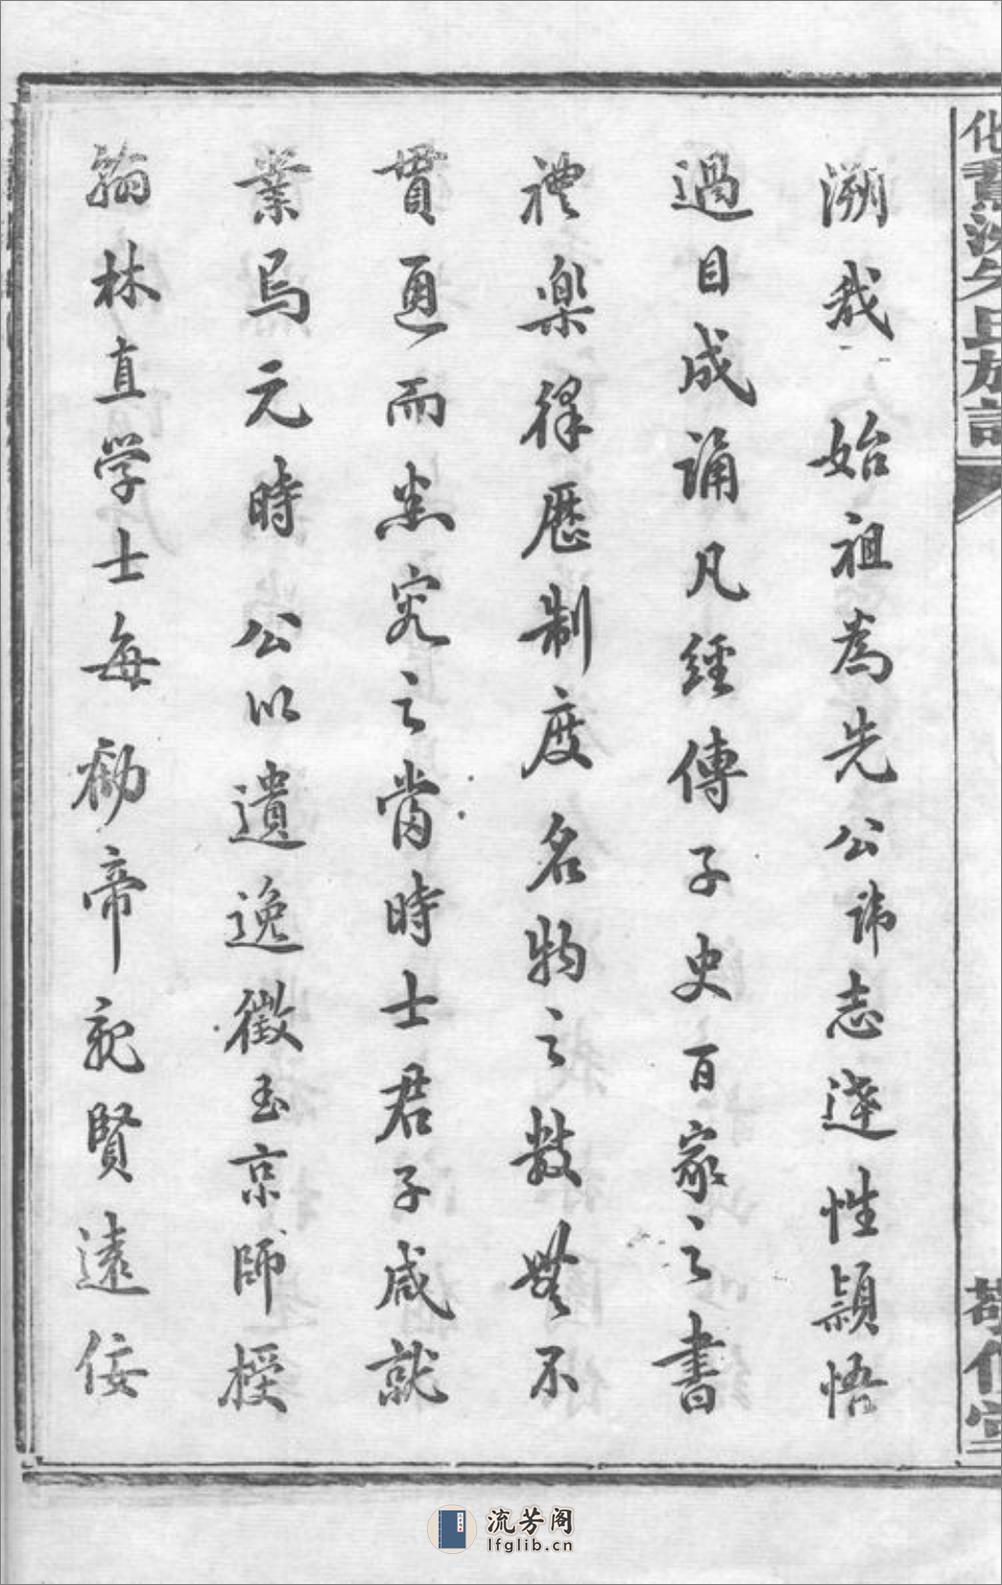 溯我 始祖為先公諱志逵性穎悟
過目成誦凡經傳子史百家之書
禮樂律歷制度名物之數無不
貫通而悉究之當時士君子咸就
業焉元時 公以遺逸徵至京師授
翰林直学士每勸帝親賢遠佞
流芳阁
lfglib.cn